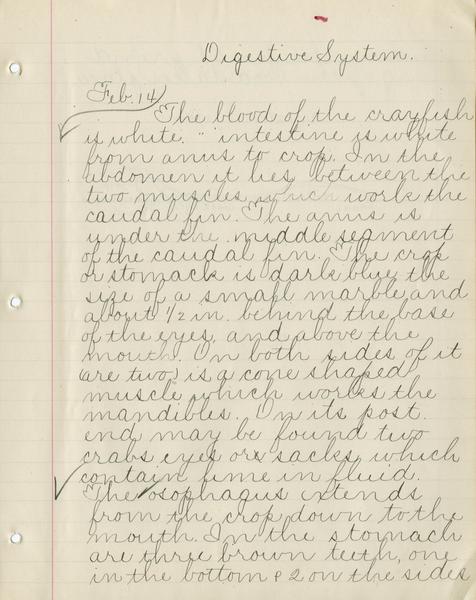 Digestive System.
Feb. 14
The blood of the crayfish
is white. " intestine is white
from anus to crop. In the
abdomen it lies between the
two muscles which work the
caudal fin. The anus is
under the middle segment
of the caudal fin. The crop
or stomack is dark blue the
size of a small marble, and
about 1/2 in. behind the base
of the eyes, and above the
mouth. On both sides of it
(are two) is a cone shaped
muscle which works the
mandibles. On its post.
end may be found two
crabs eyes or sacks which
contain lime in fluid.
The osophagus extends
from the crop down to the
mouth. In the stomach
are three brown teeth, one
in the bottom & 2 on the sides